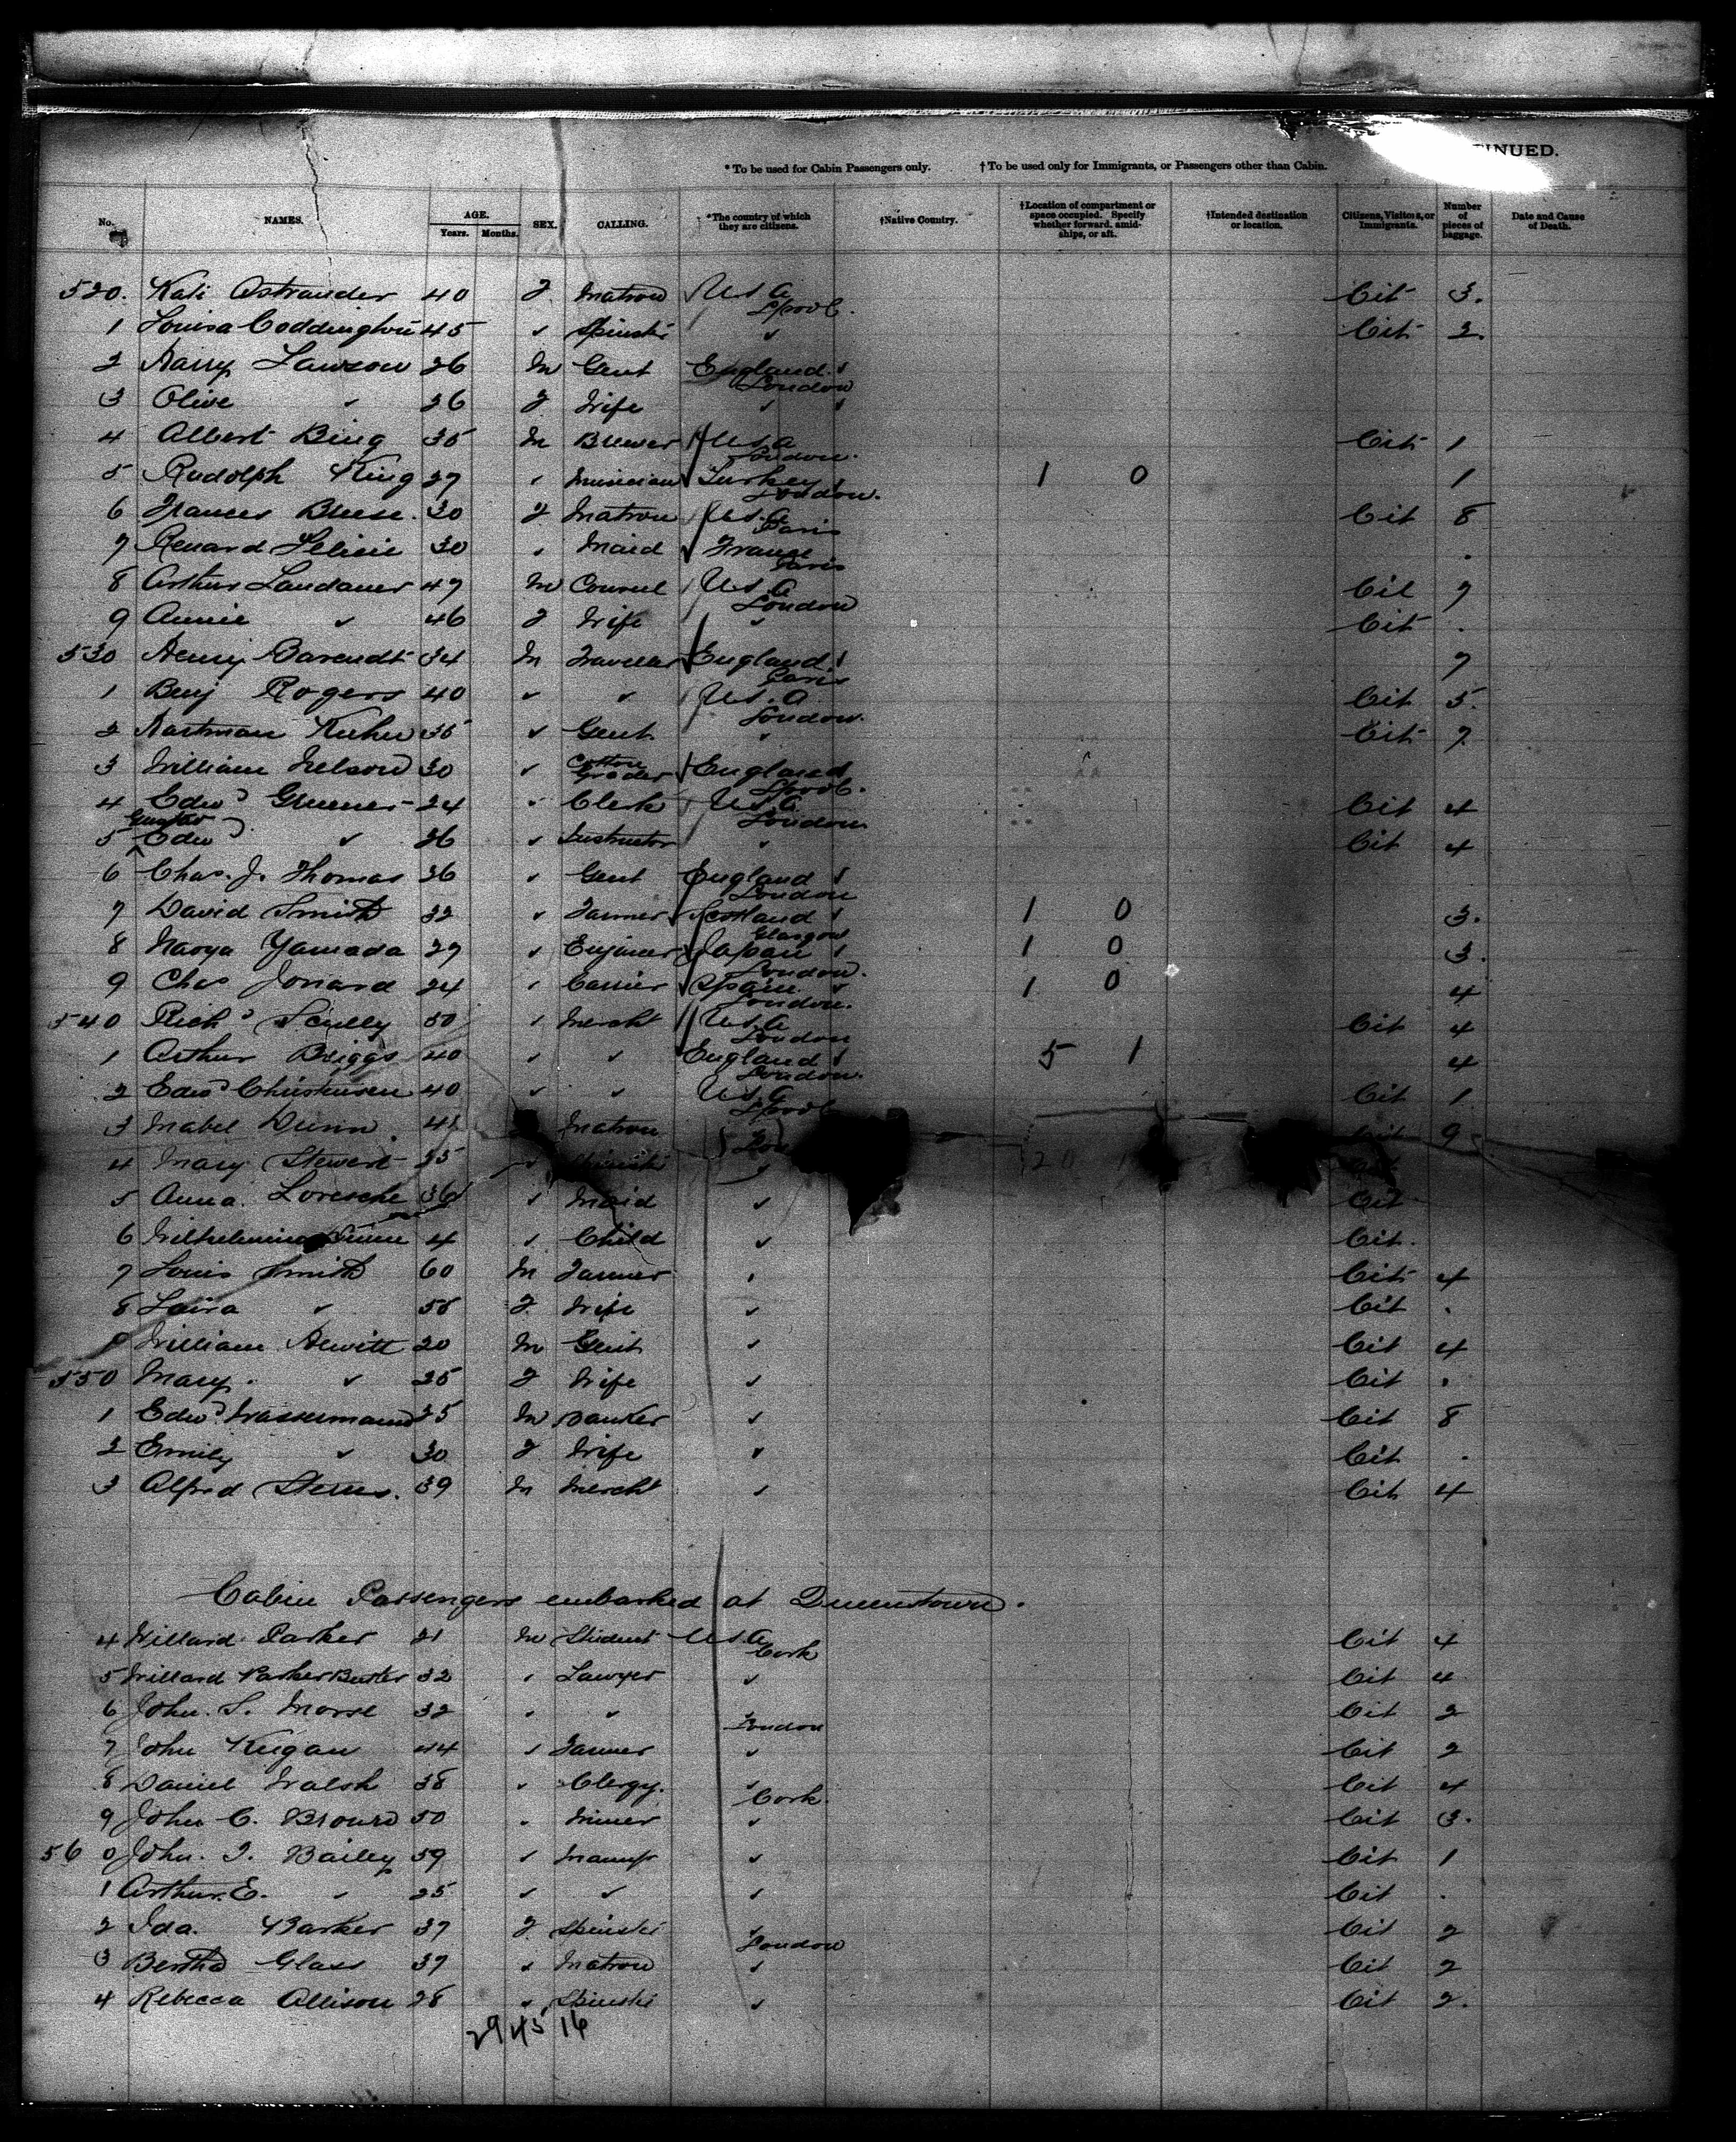 TINUED.
* To be used for Cabin Passengers only. † To be used only for Immigrants, or Passengers other than Cabin.
No. NAMES. AGE. Years. Months. SEX. CALLING. *The country of which they are citizens. †Native Country. †Location of compartment or space occupied. Specify whether forward, amidships, or aft. †Intended destination or location. Citizens, Visitors, or Immigrants. Number of pieces of baggage. Date and Cause of Death.
520. Kate Ostrander 40 F Matron U.S.A L'pool. Cit 3.
1 Louisa Coddington 45 ✓ Spinstr ✓ Cit 2.
2 Harry Lawson 26 M Gent England London
3 Olive ✓ 26 F Wife ✓
4 Albert Bing 35 M Brewer U.S.A London. Cit 1
5 Rudolph King 27 ✓ Musician Turkey London. 1 0 1
6 Frances Breese. 30 F Matron U.S.A Paris Cit 8
7 Renard Felicie 30 ✓ Maid France Paris .
8 Arthur Landauer 47 M U.S.A London Cit 7
9 Annie ✓ 46 F Wife ✓ Cit .
530 Henry Barendt 34 M England Paris 7
1 Benj Rogers 40 ✓ ✓ U.S.A London. Cit 5.
2 Hartman Kuhn 35 ✓ Gent ✓ Cit 7
3 William Nelson 30 ✓ Cotton Grader England L'pool.
4 Edwd Gruener 24 ✓ Clerk U.S.A London Cit 4
5 Gustav Edwd ✓ 26 ✓ Instructor ✓ Cit 4
6 Chas. J. Thomas 36 ✓ Gent England London
7 David Smith 32 ✓ Farmer Scotland Glasgow 1 0 3.
8 Naoya Yamada 29 ✓ Engineer Japan London. 1 0 3.
9 Chas 24 ✓ Spain London. 1 0 4
540 Richd Scully 50 ✓ Mercht U.S.A London Cit 4
1 Arthur Briggs 40 ✓ ✓ England London. 5 1 4
2 Edwd Christensen 40 ✓ ✓ U.S.A L'pool Cit 1
3 Mabel Dunn Matron Lon 9
4 Mary Stewart 25 ✓ ✓
5 Anna Loresche 36 ✓ Maid ✓ Cit
6 Wilhelmina 4 ✓ Child ✓ Cit.
7 Louis Smith 60 M Farmer ✓ Cit 4
8 Laira ✓ 55 F. Wife ✓ Cit .
9 William Hewitt 20 M Gent ✓ Cit 4
550 Mary. ✓ 25 F Wife ✓ Cit .
1 Edwd Wassermann 25 M Banker ✓ Cit 8
2 Emily ✓ 30 F Wife ✓ Cit .
3 Alfred Sterns. 39 M Mercht ✓ Cit 4
Cabin Passengers embarked at Queenstown.
4 Willard Parker 21 M Student U.S.A Cork Cit 4
5 Willard Parker Butler 32 ✓ Lawyer ✓ Cit 4
6 John. S. Morse 32 ✓ ✓ London Cit 2
7 John Keegan 44 ✓ Farmer ✓ Cit 2
8 Daniel Walsh 38 ✓ Clergy. Cork Cit 4
9 John C. Brown 50 ✓ Miner ✓ Cit 3.
56 0 John. T. Bailey 59 ✓ Manufr ✓ Cit 1
1 Arthur E. ✓ 25 ✓ ✓ ✓ Cit .
2 Ida. Barker 37 F Spinstr London Cit 2
3 Bertha Glass 37 ✓ Matron ✓ Cit 2
4 Rebecca Allison 28 ✓ Spinstr ✓ Cit 2.
29 45 16